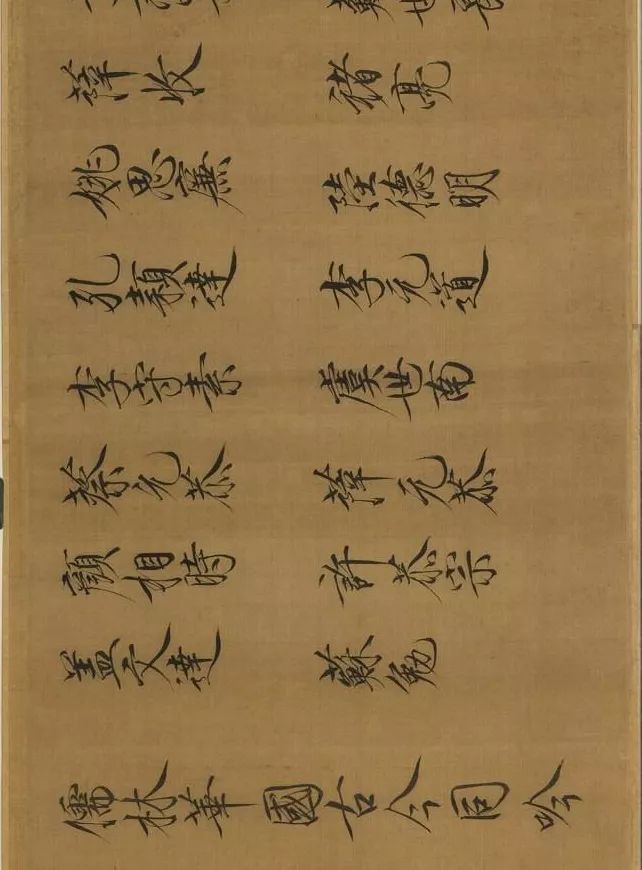 薛收 褚亮
姚思廉 陸德明
孔穎達 李元道
李守素 虞世南
蔡元恭 薛元恭
顏相時 許恭宗
蓋文達 蘇勉
儒林華國古今同吟